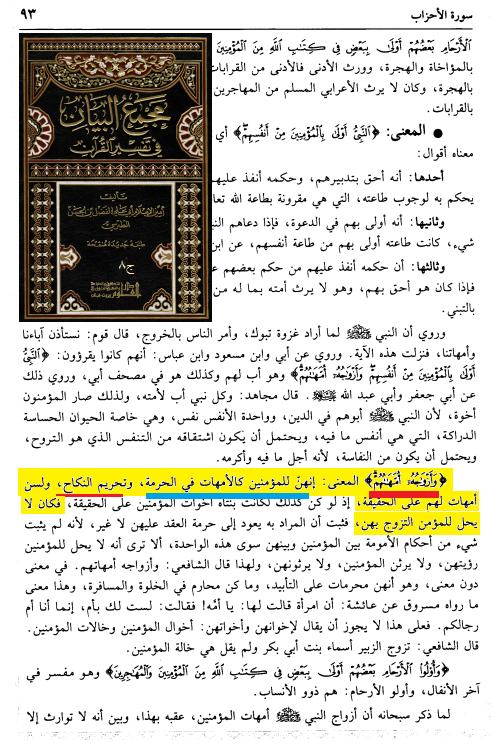 سورة الأحزاب ٩٣
الأَرْحَامِ بَعْضُهُمْ أَوْلَى بِبَعْضٍ فِي كِتَابِ اللَّهِ مِنَ الْمُؤْمِنِينَ
بالمؤاخاة والهجرة، وورث الأدنى فالأدنى من القرابات
بالهجرة، وكان لا يرث الأعرابي المسلم من المهاجرين
بالقرابات.
● المعنى: ﴿النَّبِيُّ أَوْلَى بِالْمُؤْمِنِينَ مِنْ أَنْفُسِهِمْ﴾ أي
معناه أقوال:
أحدها: أنه أحق بتدبيرهم، وحكمه أنفذ عليهم
يحكم به لوجوب طاعته، التي هي مقرونة بطاعة الله تعا
وثانيها: أنه أولى بهم في الدعوة، فإذا دعاهم النب
شيء، كانت طاعته أولى بهم من طاعة أنفسهم، عن ابن
وثالثها: أن حكمه أنفذ عليهم من حكم بعضهم ع
فإذا كان هو أحق بهم، وهو لا يرث أمته بما له من
بالتبني.
مجمع البيان
في تفسير القرآن
تأليف
الطبرسي
طبعة جديدة منقحة
ج٨
وروي أن النبي ﷺ لما أراد غزوة تبوك، وأمر الناس بالخروج، قال قوم: نستأذن آباءنا
وأمهاتنا، فنزلت هذه الآية. وروي عن أبي وابن مسعود وابن عباس: أنهم كانوا يقرؤون: ﴿النَّبِيُّ
أَوْلَى بِالْمُؤْمِنِينَ مِنْ أَنْفُسِهِمْ وَأَزْوَاجُهُ أُمَّهَاتُهُمْ﴾ وهو أب لهم وكذلك هو في مصحف أبي، وروي ذلك
عن أبي جعفر وأبي عبد الله. قال مجاهد: وكل نبي أب لأمته، ولذلك صار المؤمنون
أخوة، لأن النبي ﷺ أبوهم في الدين، وواحدة الأنفس نفس، وهي خاصة الحيوان الحساسة
الدراكة، التي هي أنفس ما فيه، ويحتمل أن يكون اشتقاقه من التنفس الذي هو التروح،
ويحتمل أن يكون من النفاسة، لأنه أجل ما فيه وأكرمه.
﴿وَأَزْوَاجُهُ أُمَّهَاتُهُمْ﴾ المعنى: إنهنّ للمؤمنين كالأمهات في الحرمة، وتحريم النكاح، ولسن
أمهات لهم على الحقيقة، إذ لو كن كذلك لكانت بناته أخوات المؤمنين على الحقيقة، فكان لا
يحل للمؤمن التزوج بهن، فثبت أن المراد به يعود إلى حرمة العقد عليهن لا غير، لأنه لم يثبت
شيء من أحكام الأمومة بين المؤمنين وبينهن سوى هذه الواحدة، ألا ترى أنه لا يحل للمؤمنين
رؤيتهن، ولا يرثن المؤمنين، ولا يرثونهن، ولهذا قال الشافعي: وأزواجه أمهاتهم. في معنى
دون معنى، وهو أنهن محرمات على التأبيد، وما كن محارم في الخلوة والمسافرة، وهذا معنى
ما رواه مسروق عن عائشة: أن امرأة قالت لها: يا أمّه! فقالت: لست لك بأم، إنما أنا أم
رجالكم. فعلى هذا لا يجوز أن يقال لإخوانهن وأخواتهن: أخوال المؤمنين وخالات المؤمنين.
قال الشافعي: تزوج الزبير أسماء بنت أبي بكر ولم يقل هي خالة المؤمنين.
﴿وَأُولُوا الْأَرْحَامِ بَعْضُهُمْ أَوْلَى بِبَعْضٍ فِي كِتَابِ اللَّهِ مِنَ الْمُؤْمِنِينَ وَالْمُهَاجِرِينَ﴾ وهو مفسر في
آخر الأنفال، وأولو الأرحام: هم ذوو الأنساب.
لما ذكر سبحانه أن أزواج النبي ﷺ أمهات المؤمنين، عقبه بهذا، وبين أنه لا توارث إلا